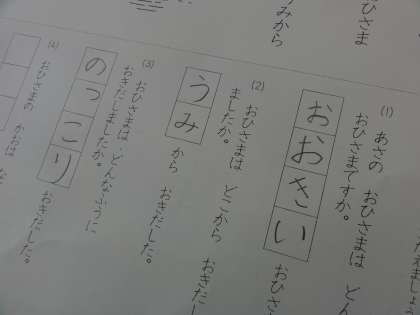 (1) あさの おひさまは どん
おひさまですか。
おおきい おひさ
(2) おひさまは どこから おきだし
ましたか。
うみ から おきだした。
(3) おひさまは、どんなふうに
おきだしましたか。
のっこり おきだした。
(4) おひさまの かおは
おひさま
うみから